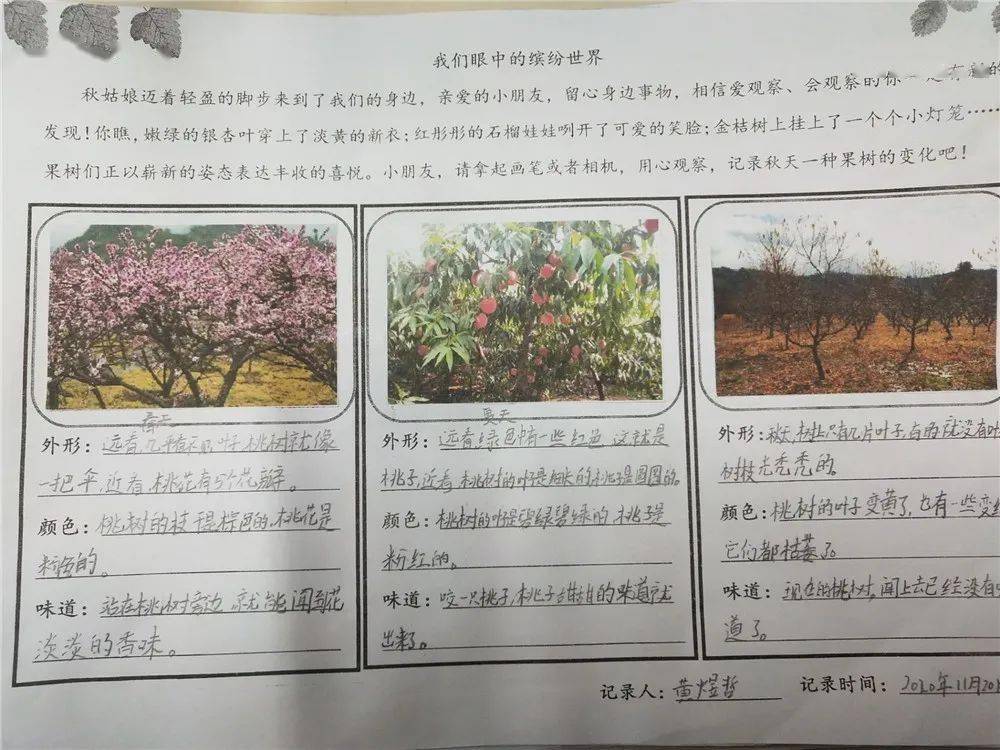 我们眼中的缤纷世界
秋姑娘迈着轻盈的脚步来到了我们的身边，亲爱的小朋友，留心身边事物，相信爱观察、会观察的你一定有新的
发现！你瞧，嫩绿的银杏叶穿上了淡黄的新衣；红彤彤的石榴娃娃咧开了可爱的笑脸；金桔树上挂上了一个个小灯笼……
果树们正以崭新的姿态表达丰收的喜悦。小朋友，请拿起画笔或者相机，用心观察，记录秋天一种果树的变化吧！
春天
外形：远看，几乎看不见叶子，桃树就像
一把伞，近看，桃花有5个花瓣。
颜色：桃树的枝干是棕色的，桃花是
粉色的。
味道：站在桃树旁边，就能闻到花
淡淡的香味。
夏天
外形：远看，绿色中有一些红色，这就是
桃子，近看，桃树的叶子是细长的，桃子是圆圆的。
颜色：桃树的叶子是碧绿碧绿的，桃子是
粉红的。
味道：咬一只桃子，桃子甜甜的味道就
出来了。
外形：秋天，树上只有几片叶子，有的就没有叶
树枝光秃秃的。
颜色：桃树的叶子变黄了，也有一些变红
它们都枯萎了。
味道：现在的桃树，闻上去已经没有
道了。
记录人：黄煜哲 记录时间：2020年11月20